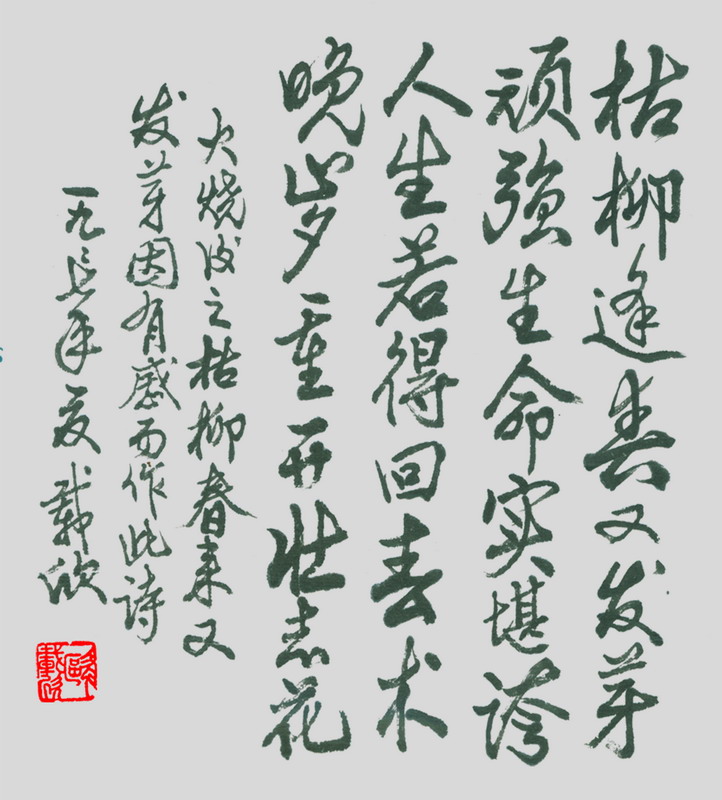 枯柳逢春又发芽
顽强生命实堪誇
人生若得回春术
晚岁重开壮志花
火烧後之枯柳春来又
发芽因有感而作此诗
一九年夏载欣
歐載欣